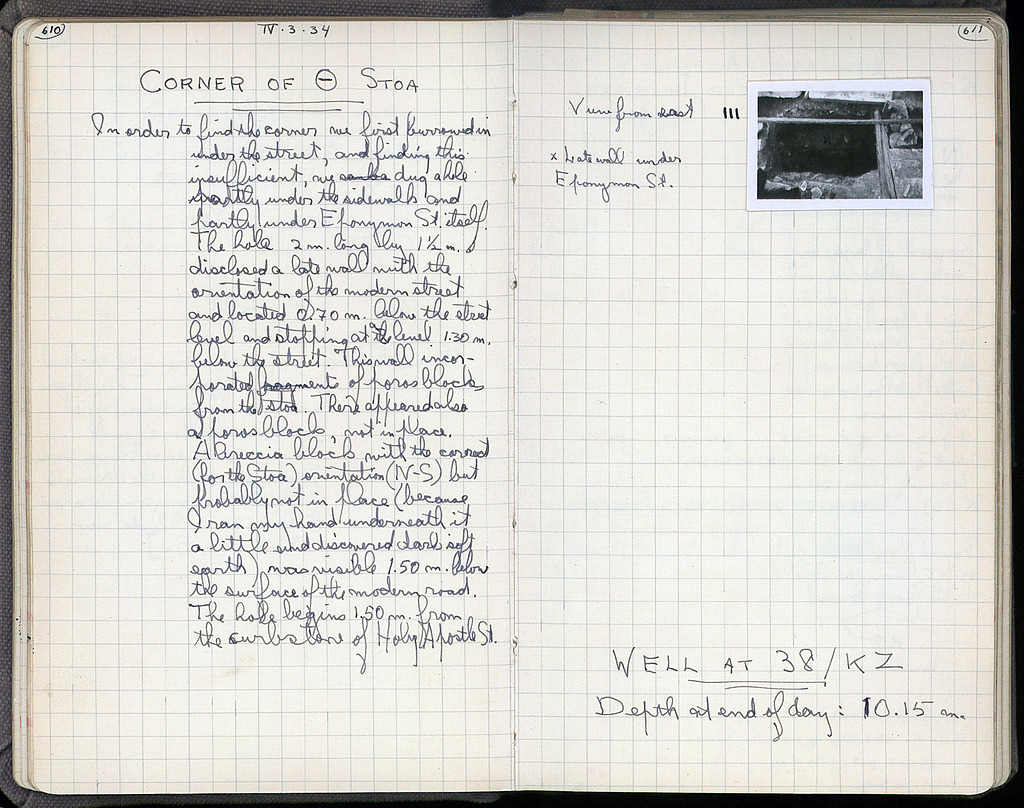 610
IV.3.34
CORNER OF Θ STOA
In order to find the corner we first burrowed in
under the street, and finding this
insufficient, we dug a hole
partly under the sidewalk and
partly under Eponymon St. itself.
The hole 2 m. long by 1½ m.
disclosed a late wall with the
orientation of the modern street
and located 0.70 m. below the street
level and stopping at the level 1.30 m.
below the street. This wall incor-
porated fragments of poros blocks
from the stoa. There appeared also
a poros block, not in place.
A breccia block with the correct
(for the Stoa) orientation (N-S) but
probably not in place (because
I ran my hand underneath it
a little and discovered dark soft
earth) was visible 1.50 m. below
the surface of the modern road.
The hole begins 1.50 m. from
the curbstone of Holy Apostle St.
611
View from east III
x Late wall under
Eponymon St.
x
WELL AT 38/ΚΖ
Depth at end of day: 10.15 m.